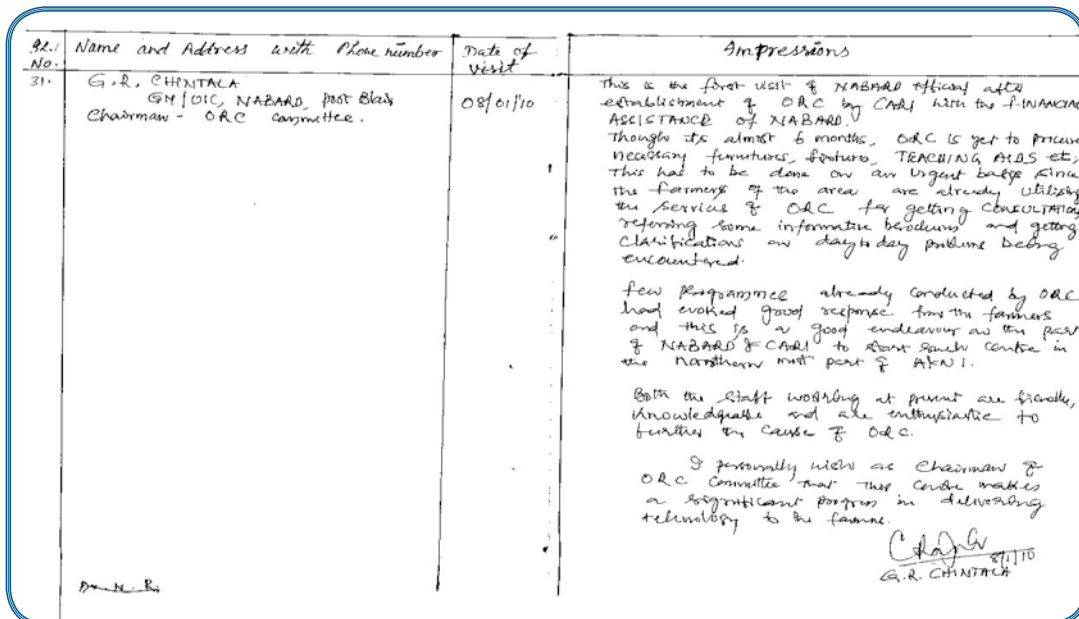 Sl.
No.
Name and Address with Phone number
Date of
visit
Impressions
31.
G.R. CHINTALA
GM/OIC, NABARD, Port Blair
Chairman - ORC Committee.
08/01/10
This is the first visit of NABARD official after
establishment of ORC by CARI with the FINANCIAL
ASSISTANCE of NABARD.
Though its almost 6 months, ORC is yet to procure
necessary furnitures, TEACHING AIDS etc,
This has to be done on an urgent basis since
the farmers of the area are already utilising
the services of ORC for getting CONSULTATION
referring some informative brochures and getting
clarifications on day to day problems being
encountered.
Few programmes already conducted by ORC
had evoked good response from the farmers
and this is a good endeavour on the part
of NABARD & CARI to start such centre in
the Northern most part of A&N I.
Both the staff working at present are friendly,
knowledgeable and are enthusiastic to
further the cause of ORC.
I personally wish as Chairman of
ORC Committee that this centre makes
a significant progress in delivering
technology to the farmers.
8/1/10
G.R. CHINTALA
N. R.